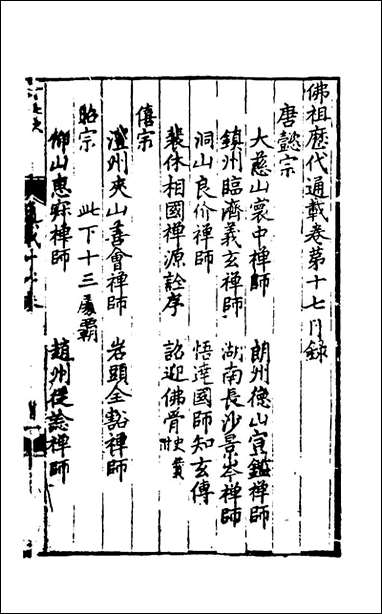 佛祖歷代通載卷第十七目錄
唐懿宗
大慈山寰中禪師 朗州德山宣鑑禪師
鎮州臨濟義玄禪師 湖南長沙景岑禪師
洞山良价禪師 悟達國師知玄傳
裴休相國禪源詮序 詔迎佛骨
僖宗
澧州夾山善會禪師 岩頭全豁禪師
昭宗 此下十三處霸
仰山惠寂禪師 趙州從諗禪師